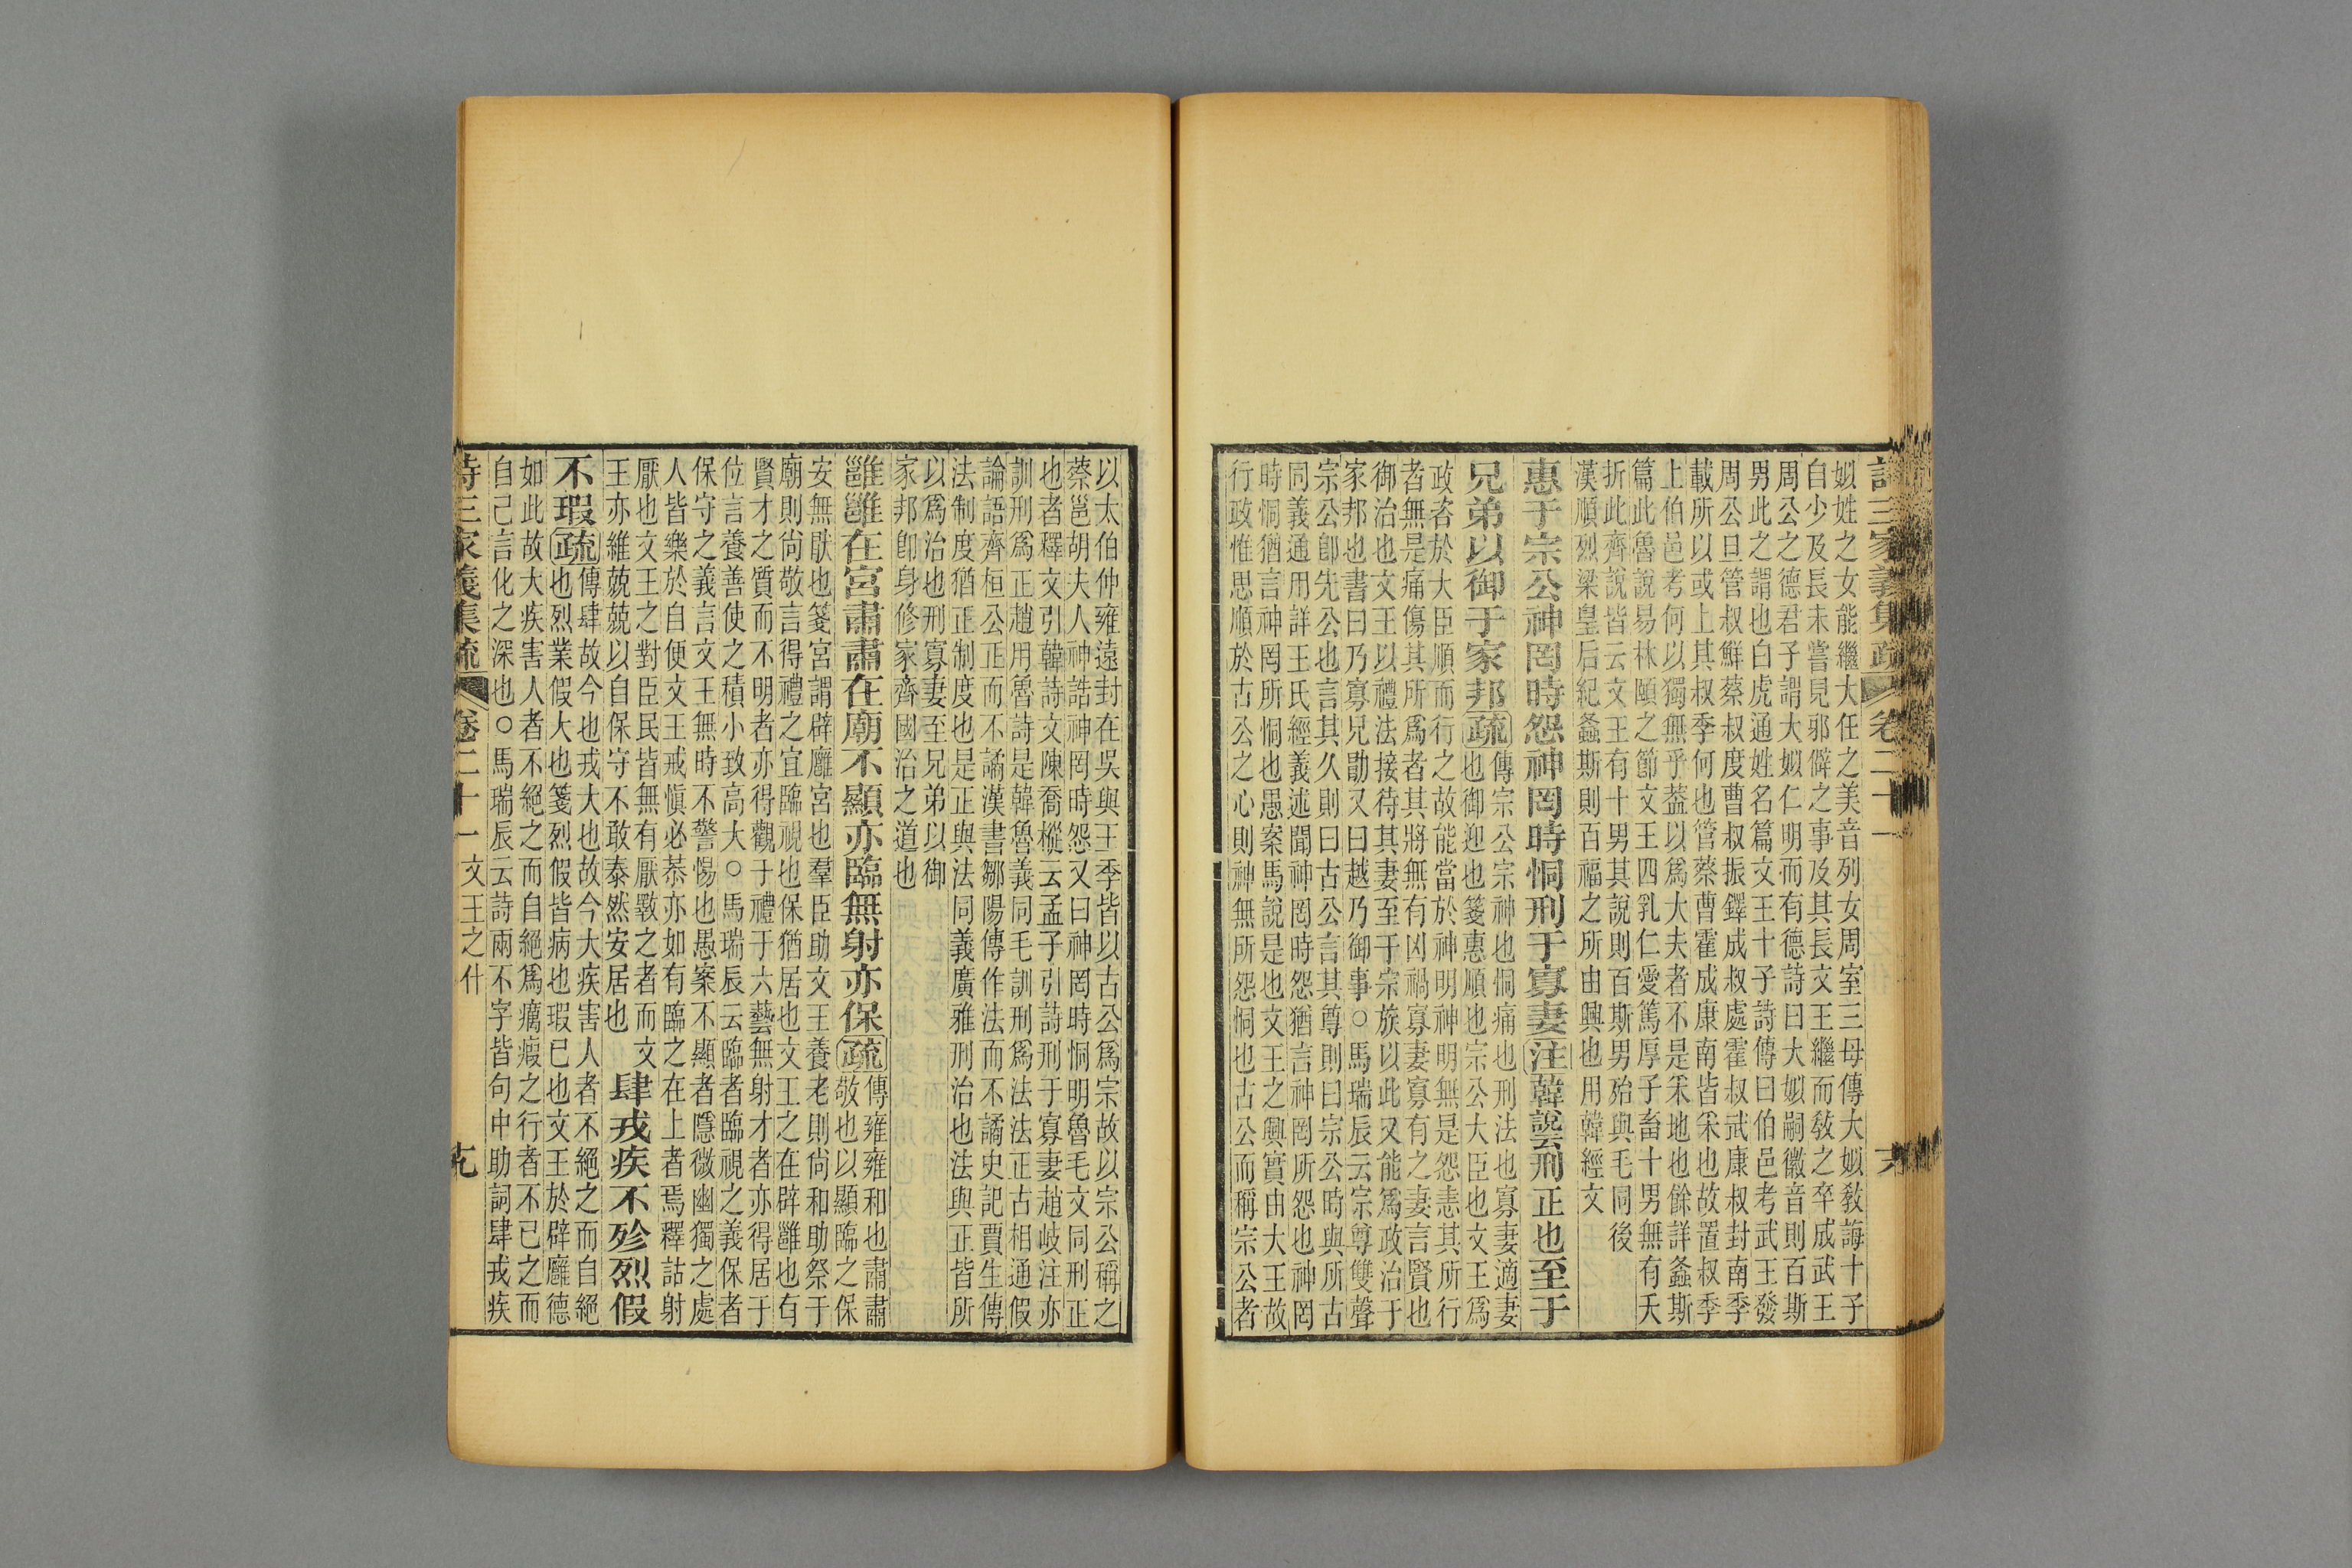 詩三家義集疏 卷二十一 大
姒姓之女能繼大任之美音列女周室三母傳大姒敎誨十子
自少及長未嘗見邪僻之事及其長文王繼而敎之卒成武王
周公之德君子謂大姒仁明而有德詩曰大姒嗣徽音則百斯
男此之謂也白虎通姓名篇文王十子詩傳曰伯邑考武王發
周公旦管叔鮮蔡叔度曹叔振鐸成叔處霍叔武康叔封南季
載所以或上其叔季何也管蔡曹霍成康南皆采也故置叔季
上伯邑考何以獨無乎葢以爲大夫者不是采地也餘詳螽斯
篇此魯說易林頤之節文王四乳仁愛篤厚子畜十男無有夭
折此齊說皆云文王有十男其說則百斯男殆與毛同後
漢順烈梁皇后紀螽斯則百福之所由興也用韓經文
惠于宗公神罔時怨神罔時恫刑于寡妻注韓說云刑正也至于
兄弟以御于家邦疏傳宗公宗神也恫痛也刑法也寡妻適妻
也御迎也箋惠順也宗公大臣也文王爲
政咨於大臣順而行之故能當於神明神明無是怨恚其所行
者無是痛傷其所爲者其將無有凶禍寡妻寡有之妻言賢也
御治也文王以禮法接待其妻至于宗族以此又能爲政治于
家邦也書曰乃寡兄勖又曰越乃御事○馬瑞辰云宗尊雙聲
宗公卽先公也言其久則曰古公言其尊則曰宗公時與所古
同義通用詳王氏經義述聞神罔時怨猶言神罔所怨也神罔
時恫猶言神罔所恫也愚案馬說是也文王之興實由大王故
行政惟思順於古公之心則神無所怨恫也古公而稱宗公者
以太伯仲雍遠封在吳與王季皆以古公爲宗故以宗公稱之
蔡邕胡夫人神誥神罔時怨又曰神罔時恫明魯毛文同刑正
也者釋文引韓詩文陳喬樅云孟子引詩刑于寡妻趙岐注亦
訓刑爲正趙用魯詩是韓魯義同毛訓刑爲法法正古相通假
論語齊桓公正而不譎漢書鄒陽傳作法而不譎史記賈生傳
法制度猶正制度也是正與法同義廣雅刑治也法與正皆所
以爲治也刑寡妻至兄弟以御
家邦卽身修家齊國治之道也
雝雝在宮肅肅在廟不顯亦臨無射亦保疏傳雍雍和也肅肅
敬也以顯臨之保
安無猒也箋宮謂辟廱宮也羣臣助文王養老則尙和助祭于
廟則尙敬言得禮之宜臨視也保猶居也文王之在辟雝也有
賢才之質而不明者亦得觀于禮于六藝無射才者亦得居于
位言養善使之積小致高大○馬瑞辰云臨者臨視之義保者
保守之義言文王無時不警惕也愚案不顯者隱微幽獨之處
人皆樂於自便文王戒愼必恭亦如有臨之在上者焉釋詁射
厭也文王之對臣民皆無有厭斁之者而文
王亦維兢兢以自保守不敢泰然安居也
肆戎疾不殄烈假
不瑕疏傳肆故今也戎大也故今大疾害人者不絕之而自絕
也烈業假大也箋烈假皆病也瑕已也文王於辟廱德
如此故大疾害人者不絕之而自絕爲癘瘕之行者不已之而
自己言化之深也○馬瑞辰云詩兩不字皆句中助詞肆戎疾
詩三家義集疏 卷二十一 文王之什 九